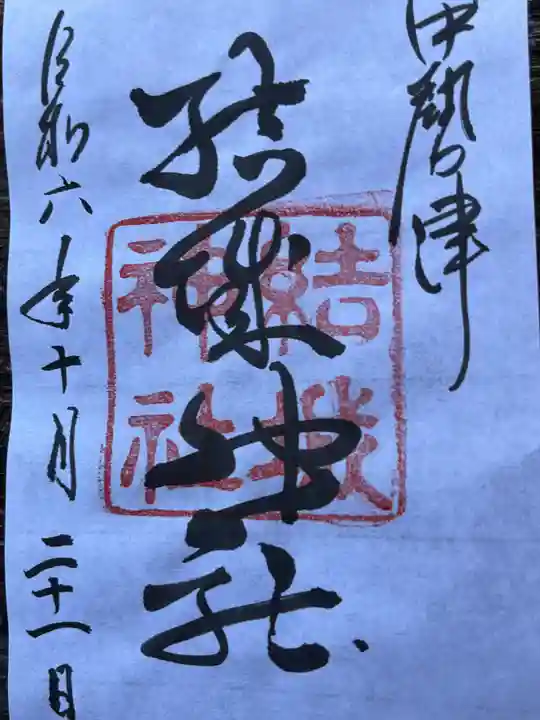 伊勢津
結城神社
結城
神社
令和六年十月二十一日